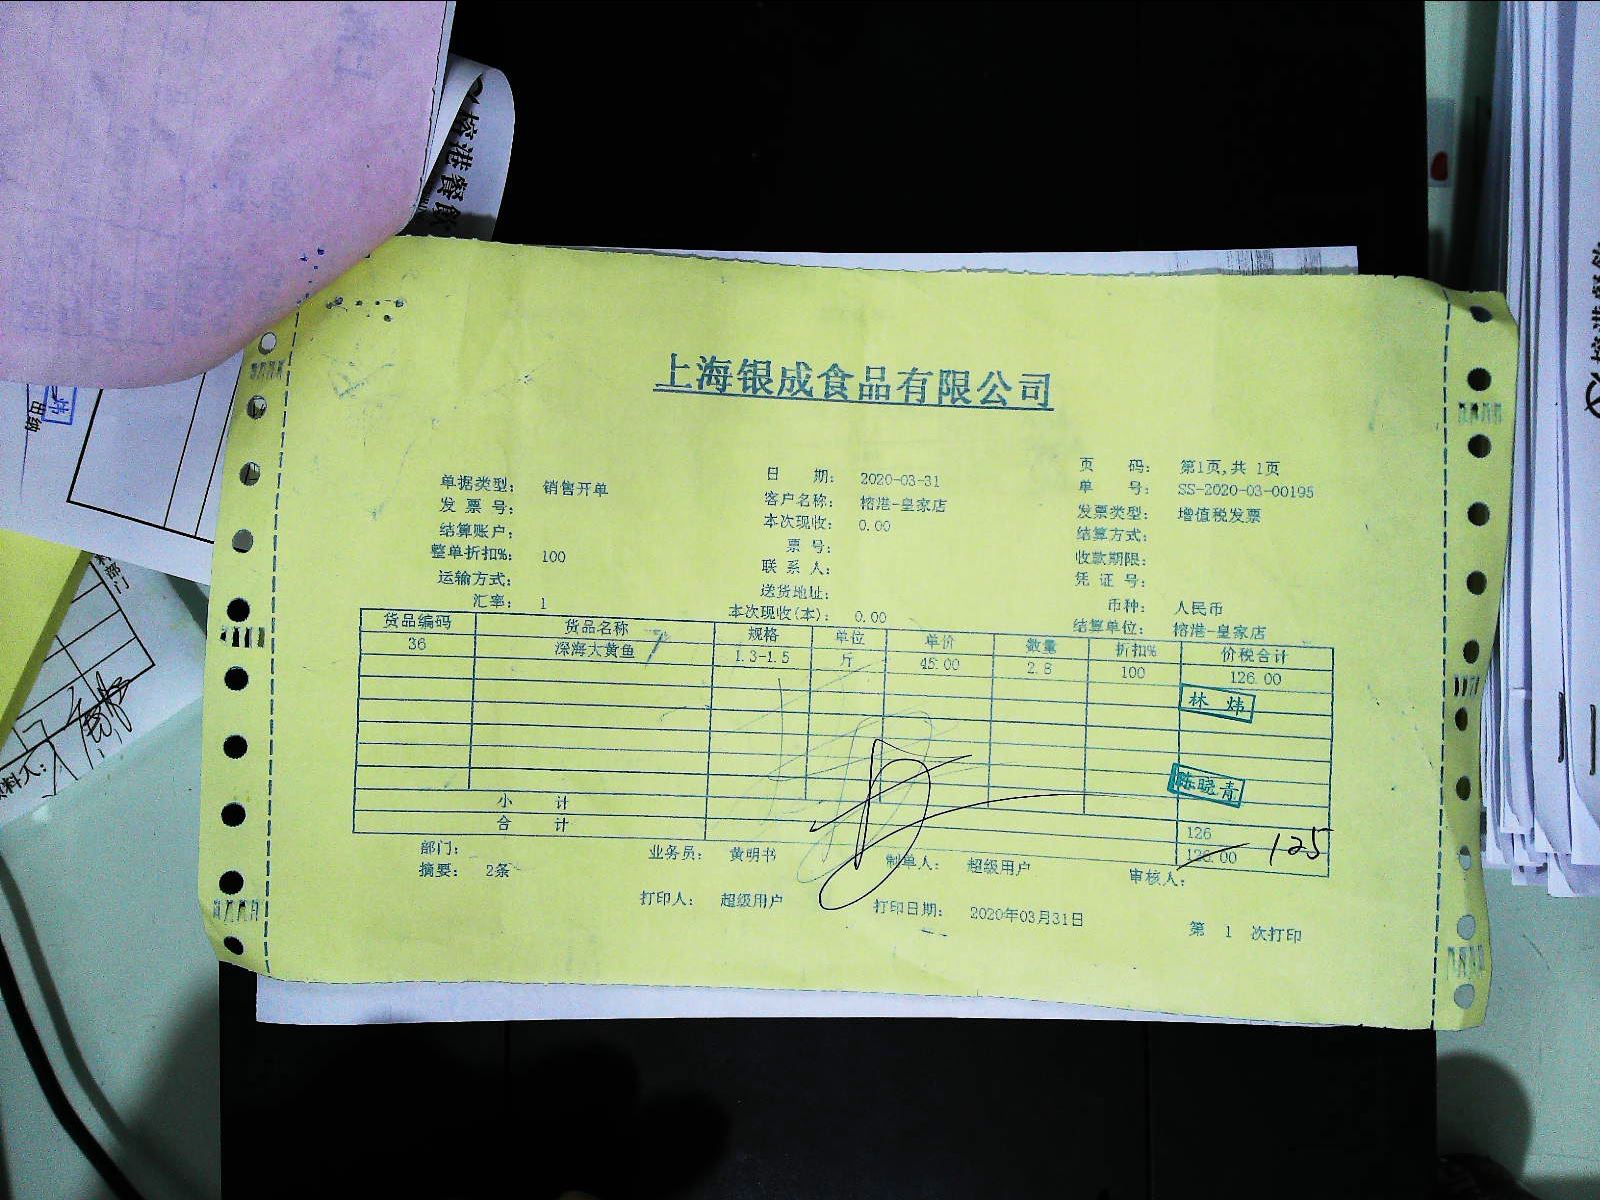 榕港餐飲
上海银成食品有限公司
单据类型: 销售开单 日 期: 2020-03-31 页 码: 第1页,共 1页
发 票 号: 客户名称: 榕港-皇家店 单 号: SS-2020-03-00195
结算账户: 本次现收: 0.00 发票类型: 增值税发票
整单折扣%: 100 票 号: 结算方式:
运输方式: 联 系 人: 收款期限:
汇率: 1 送货地址: 凭 证 号:
本次现收(本): 0.00 币种: 人民币
结算单位: 榕港-皇家店
货品编码 货品名称 规格 单位 单价 数量 折扣% 价税合计
36 深海大黄鱼 1.3-1.5 斤 45.00 2.8 100 126.00
林 炜
陈晓青
小 计 126
合 计 126.00 125
部门: 业务员: 黄明书 制单人: 超级用户 审核人:
摘要: 2条
打印人: 超级用户 打印日期: 2020年03月31日 第 1 次打印
部门
料人: